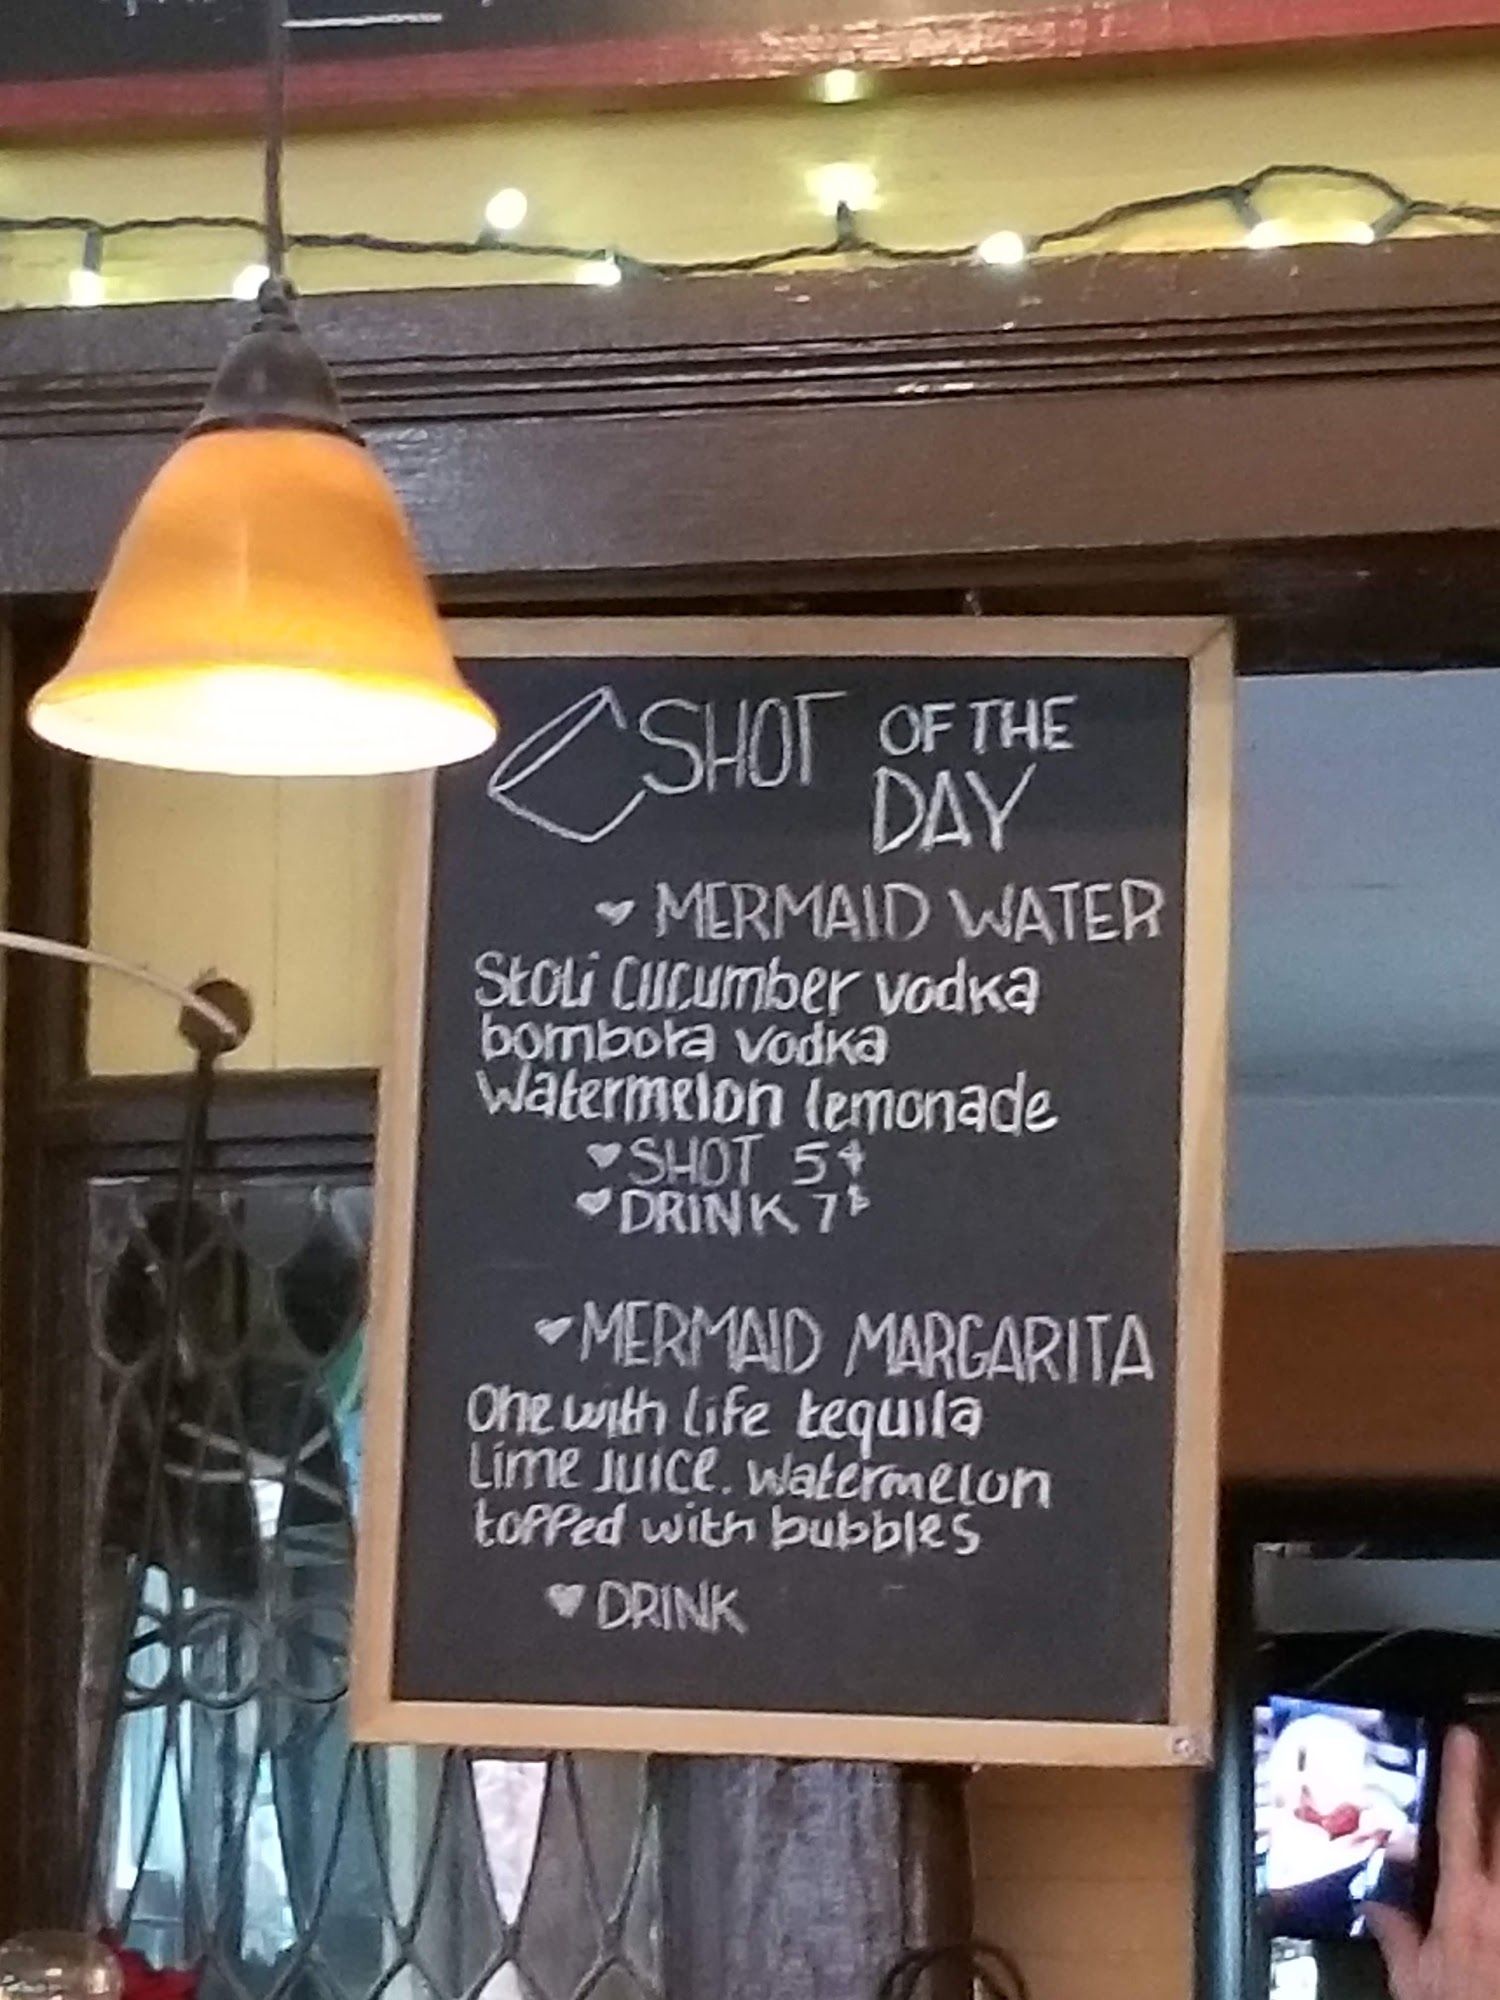 SHOT OF THE
DAY
MERMAID WATER
Stoli Cucumber vodka
bombora vodka
Watermelon lemonade
SHOT 5
DRINK 7
MERMAID MARGARITA
One with life tequila
Lime Juice. Watermelon
topped with bubbles
DRINK